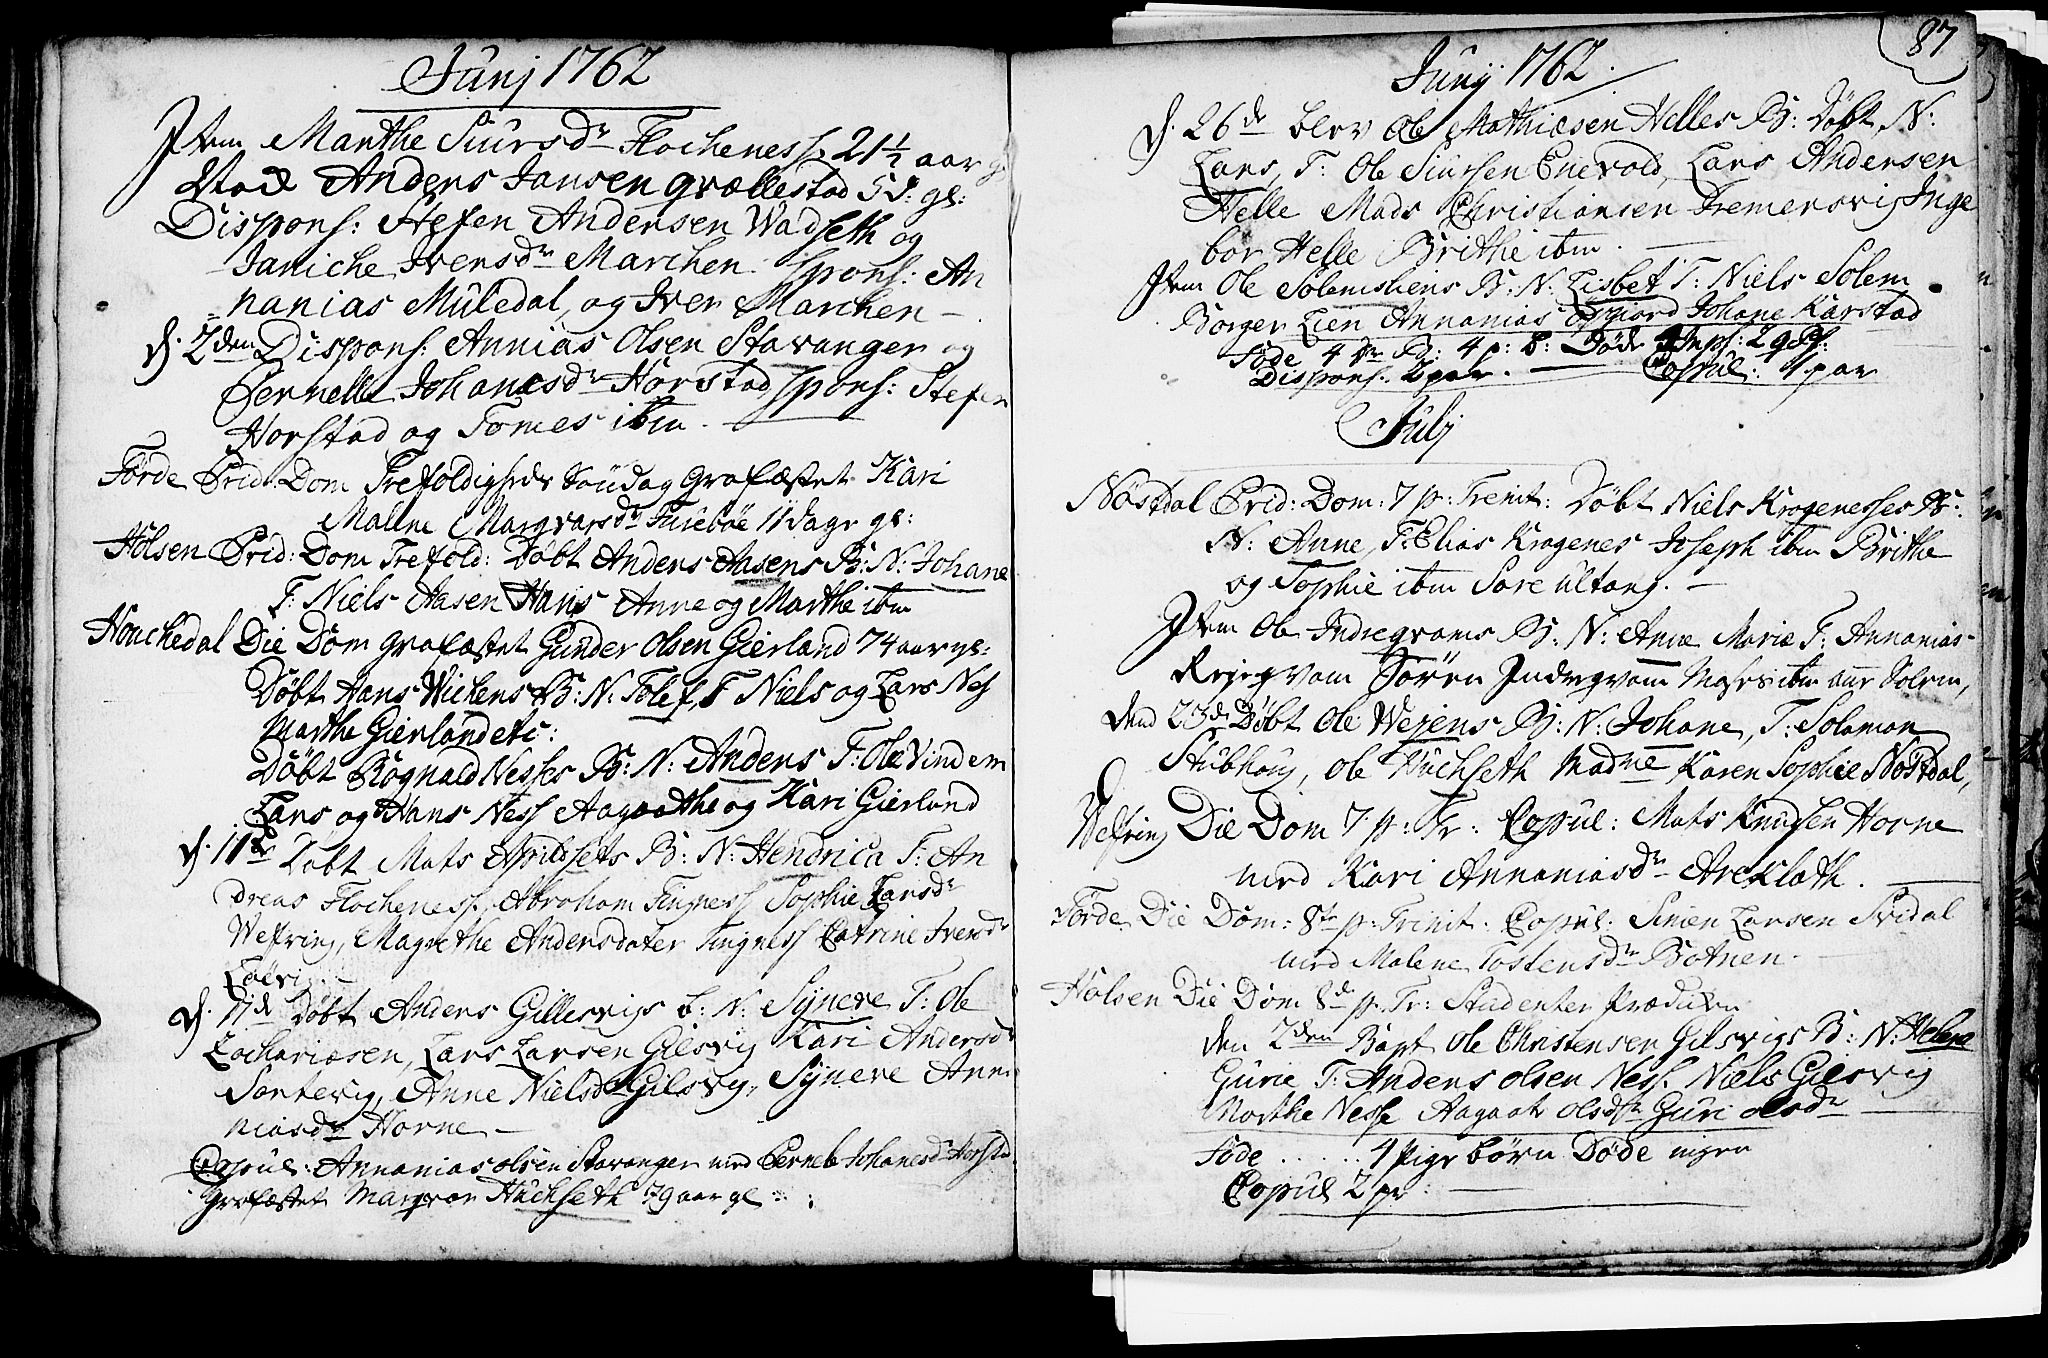 Junj 1762
Item Marthe Siurs dr Flocheness 21 1/2 aar g
Mad Anders Jansen grællestad 5 d: gl:
Dispons: Stefen Andersen Wadseth og
Janiche Ivers dr Marchen spons: An
nanias Muledal, og Iver Marchen –
d. 2den Dispons: Annias Olsen Stavanger og
Pernelle Johanes dr Horstad spons: Stefen
Horstad og Tomes ibm. –
Førde Prid: Dom Trefoldigheds Søndag Grafæstet Kari
Malene Margvars dr Furebøe 11 dage gl:
Holsen Prid: Dom Trefold: Døbt Anders Aasens B: N: Johane
F: Niels Aasen Hans Anne og Marthe ibm
Houchedal Die Dom grafæstet Gunder Olsen Gierland 74 aar gl:
Døbt Hans Wichens B: N: Tolef, F Niels og Lars Ness
Marthe Gierland etc:
Døbt Rognald Nesses B: N: Anders F: Ole Vindem
Lars og Hans Ness Aagaathe og Kari Gierland
d. 11te Døbt Mats Espildsets B: N: Hendrica F: An
dreas Flocheness, Abraham Tingness Sophie Lars dr
Wefring, Magrethe Andersdater Tingness Catrine Ivers dr
Løevig –
d. 17d Døbt Anders Gillesvigs b: N: Synere F: Ole
Zachariæsen, Lars Larsen Gilsvig Kari Anders dr
Sortevig, Anne Niels d Gilsvig, Synere Anna
nias dr Horne –
Copul: Annanias olsen Stavanger med Pernele Johanes d Horsta
Grafæstet Margvar Huchseth 79 aar gl
87
Junij 1762.
d. 26de blev Ole Mathiesen Helles B: Døbt N:
Lars, F: Ole Siursen Enevold, Lars Andersen
Helle Mads Christiansen Fremersvig Inge
bor Helle Brithe ibm. –
Item Ole Solemsliens B: N: Lisbet F: Niels Solem
Borger Lien Annanias Espiord Johane Karstad
Føde 4 dr B: 4 p: b: Døde 4 Inps: 2 qps:
Dispons: 2 par. – Copul: 1 par
Julj
Nøstdal Prid: Dom: 7 p: Trinit: Døbt Niels Krogenesses B:
N: Anne, F: Elias Krogenes Joseph ibm Brithe
og Sophie ibm Sore ultang. –
Item Ole Indregvams B: N: Anne Marie F: Annanias
Reiegvam Søren Indregvam Moses ibm aur Solem,
den 23d Døbt Ole Wejens B: N: Johane, F: Solamon
Stubhoug, Ole Huchseth Madme Karen Sophie Nøstdal,
Wefring Die Dom 7 p: Tr: Copul: Mats Knudsen Horne
med Kari Annanias dr Areklath. –
Førde Die Dom: 8te p: Trinit: Copul: Simen Larsen Svidal
med Malene Tostens dr Botnen. –
Holsen Die Dom 8d p. Tr: Studenter Prædiken
den 2den Bapt Ole Christensen Gilsvigs B: N: Helena
Gurie F: Anders Olsen Ness. Niels Gilsvig
Marthe Nesse Aagaat ols dtr Guri ols dr –
Føde . . . . . 4 Pige børn Døde ingen
Copul 2 pr: –